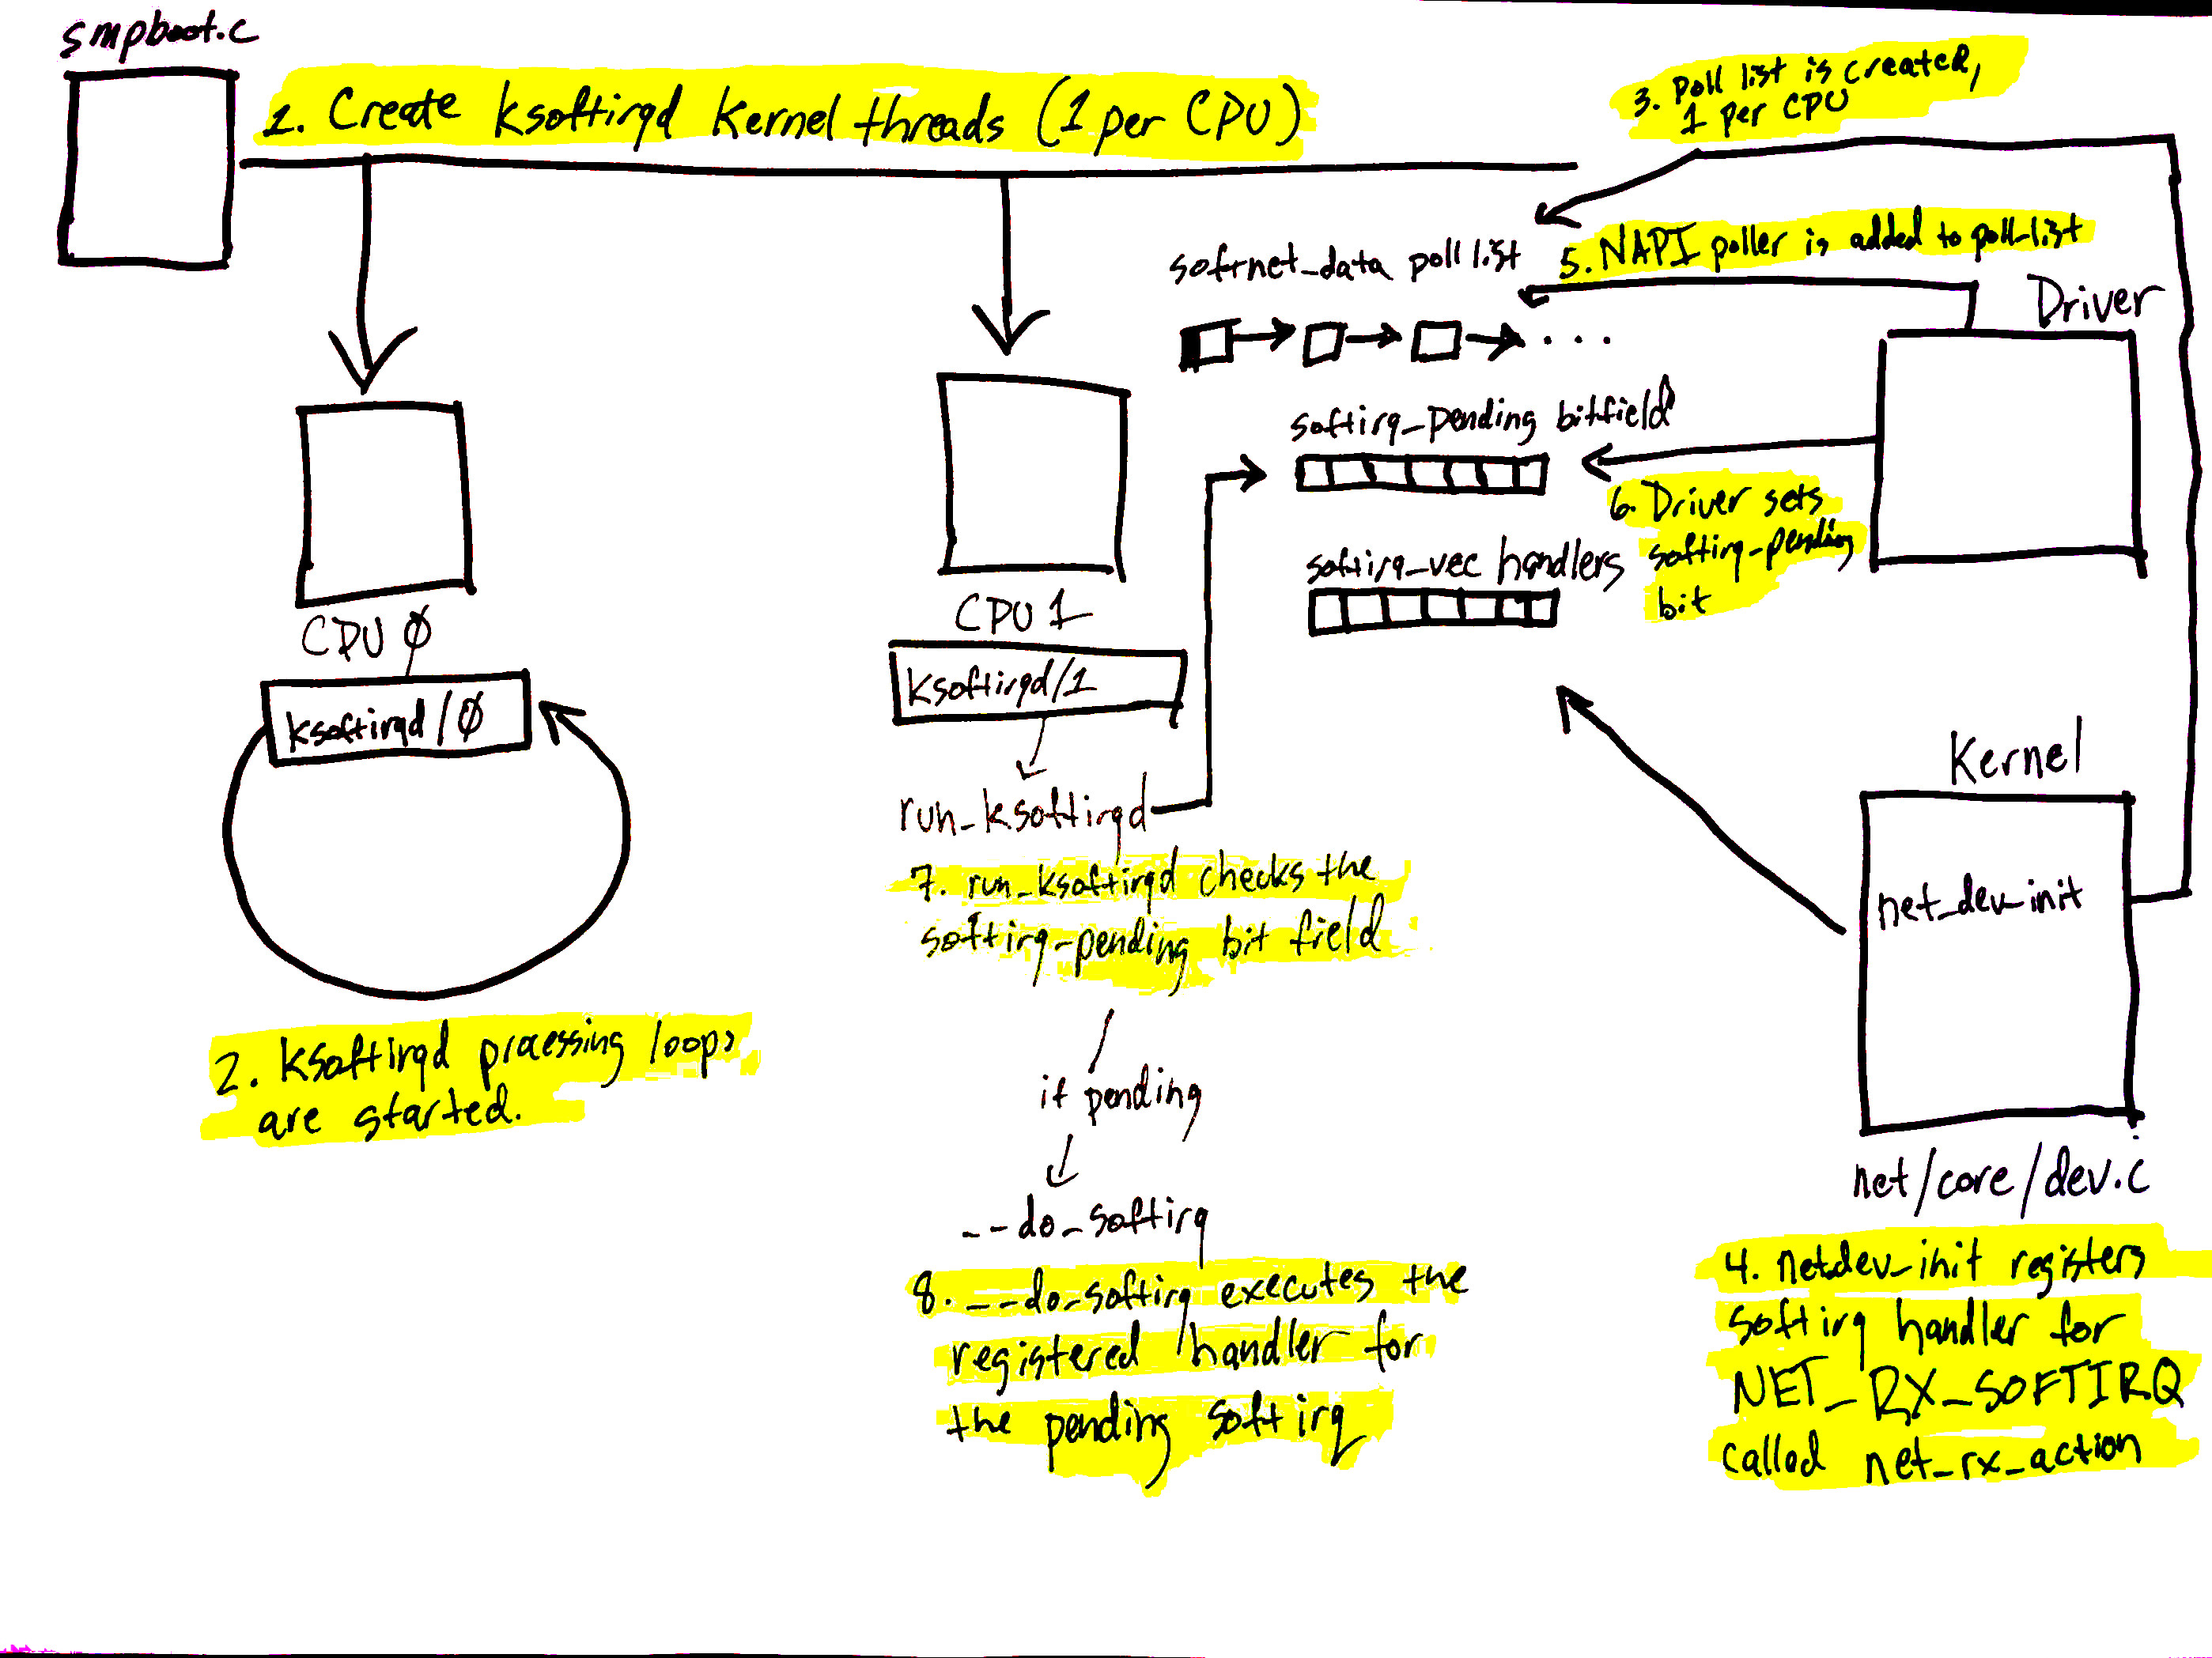 smpboot.c
1. Create ksoftirqd kernel threads (1 per CPU)
3. Poll list is created,
1 per CPU
5. NAPI poller is added to poll_list
softnet_data poll list
Driver
softirq_pending bitfield
6. Driver sets
softirq_pending
bit
softirq_vec handlers
CPU 0
CPU 1
ksoftirqd/0
ksoftirqd/1
run_ksoftirqd
Kernel
net_dev_init
7. run_ksoftirqd checks the
softirq_pending bit field
2. ksoftirqd processing loops
are started.
if pending
net/core/dev.c
__do_softirq
4. netdev_init registers
softirq handler for
NET_RX_SOFTIRQ
called net_rx_action
8. __do_softirq executes the
registered handler for
the pending softirq